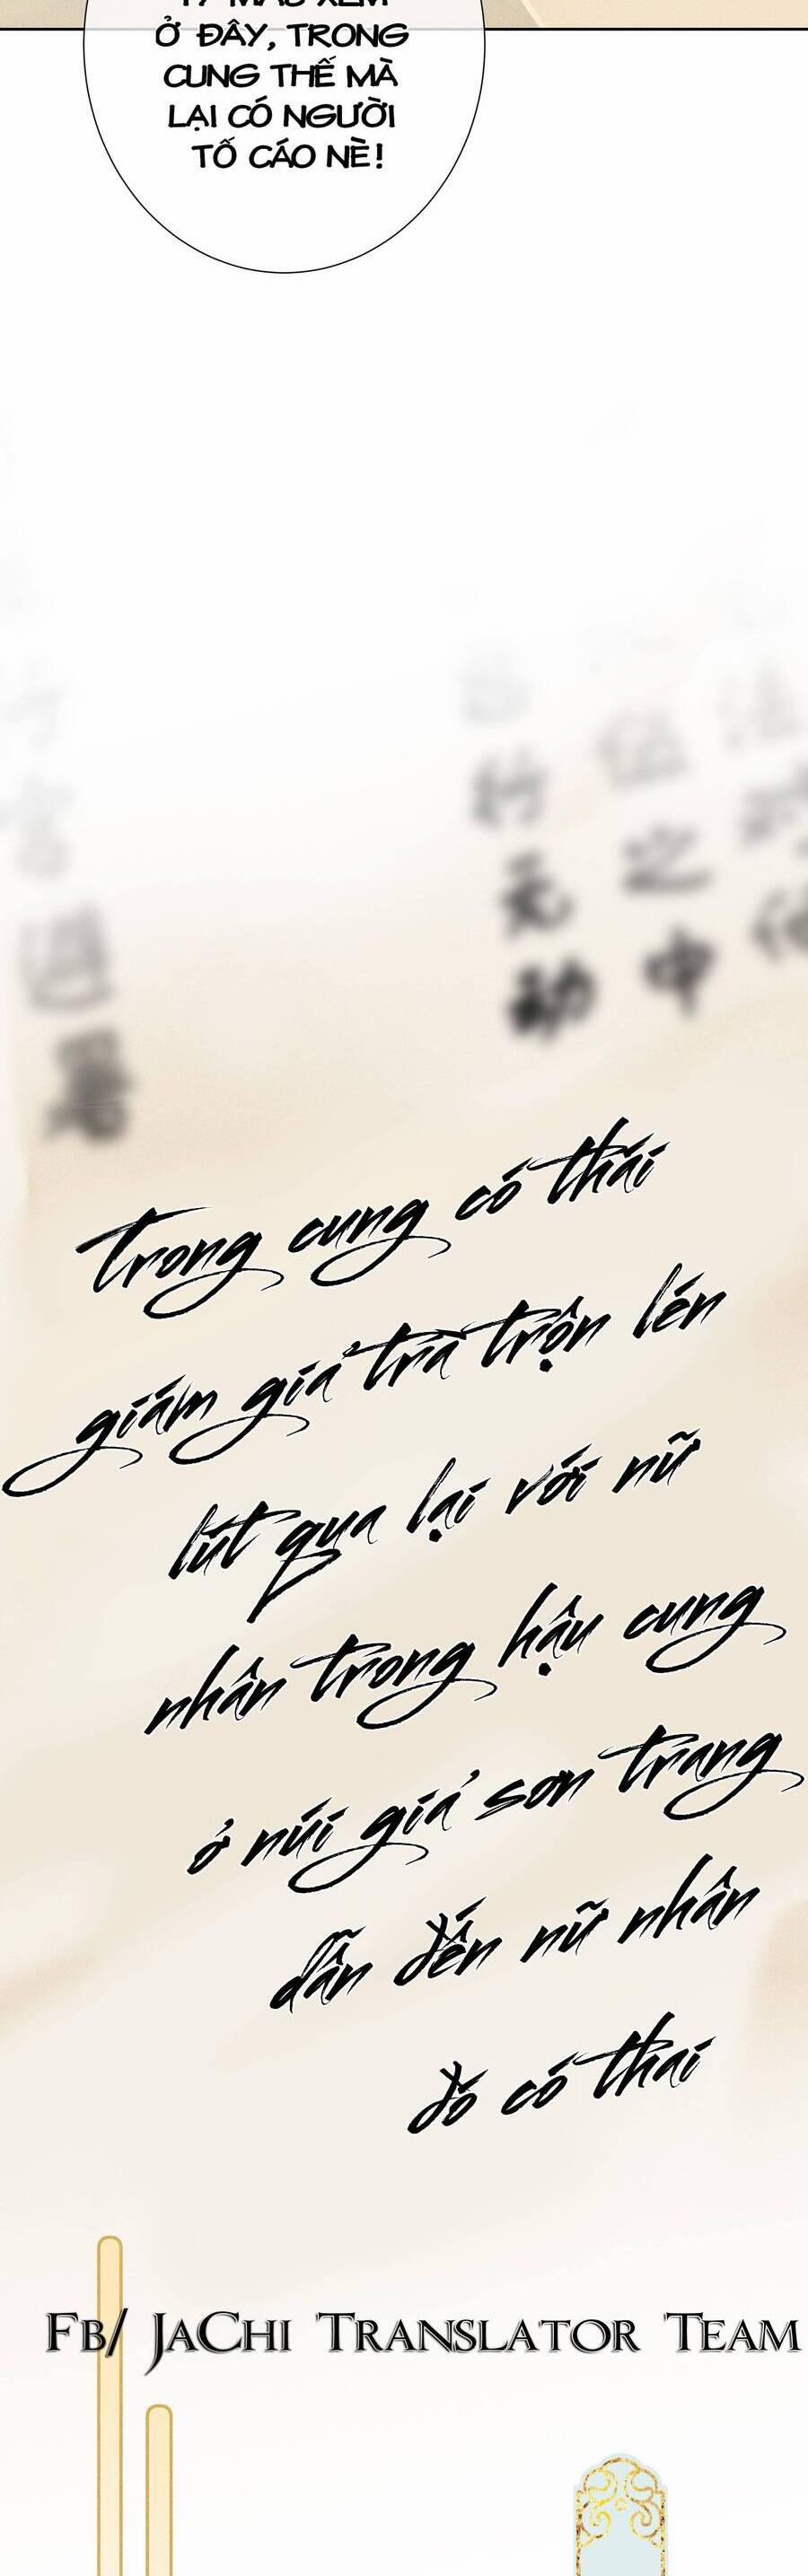 MAU XEM
Ở ĐÂY, TRONG
CUNG THẾ MÀ
LẠI CÓ NGƯỜI
TỐ CÁO NÈ!
行
元
动
之
中
trong cung có thái
giám giả trà trộn lén
lút qua lại với nữ
nhân trong hậu cung
ở núi giả sơn trang
dẫn đến nữ nhân
đó có thai
FB/ JACHI TRANSLATOR TEAM